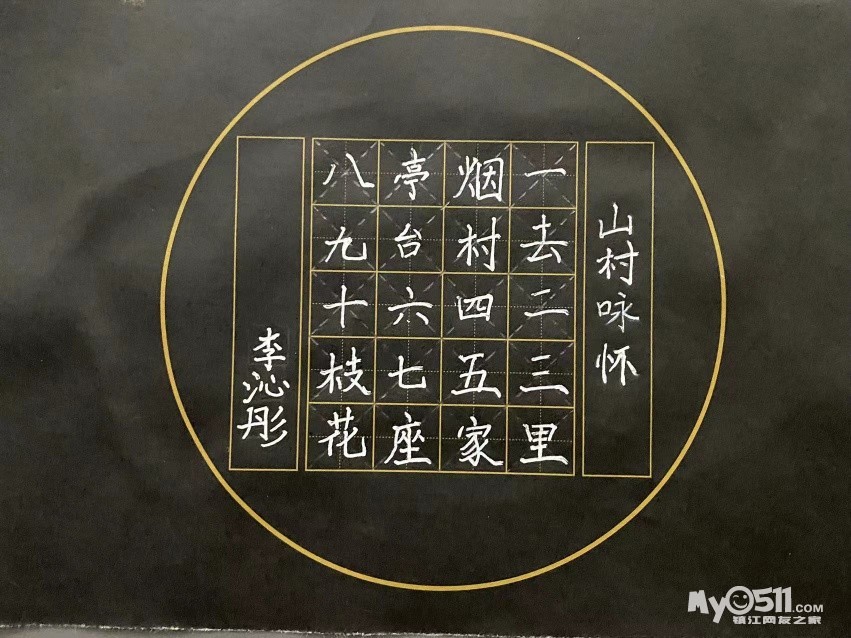 山村咏怀
一去二三里
烟村四五家
亭台六七座
八九十枝花
李沁彤
My0511.com
镇江网友之家